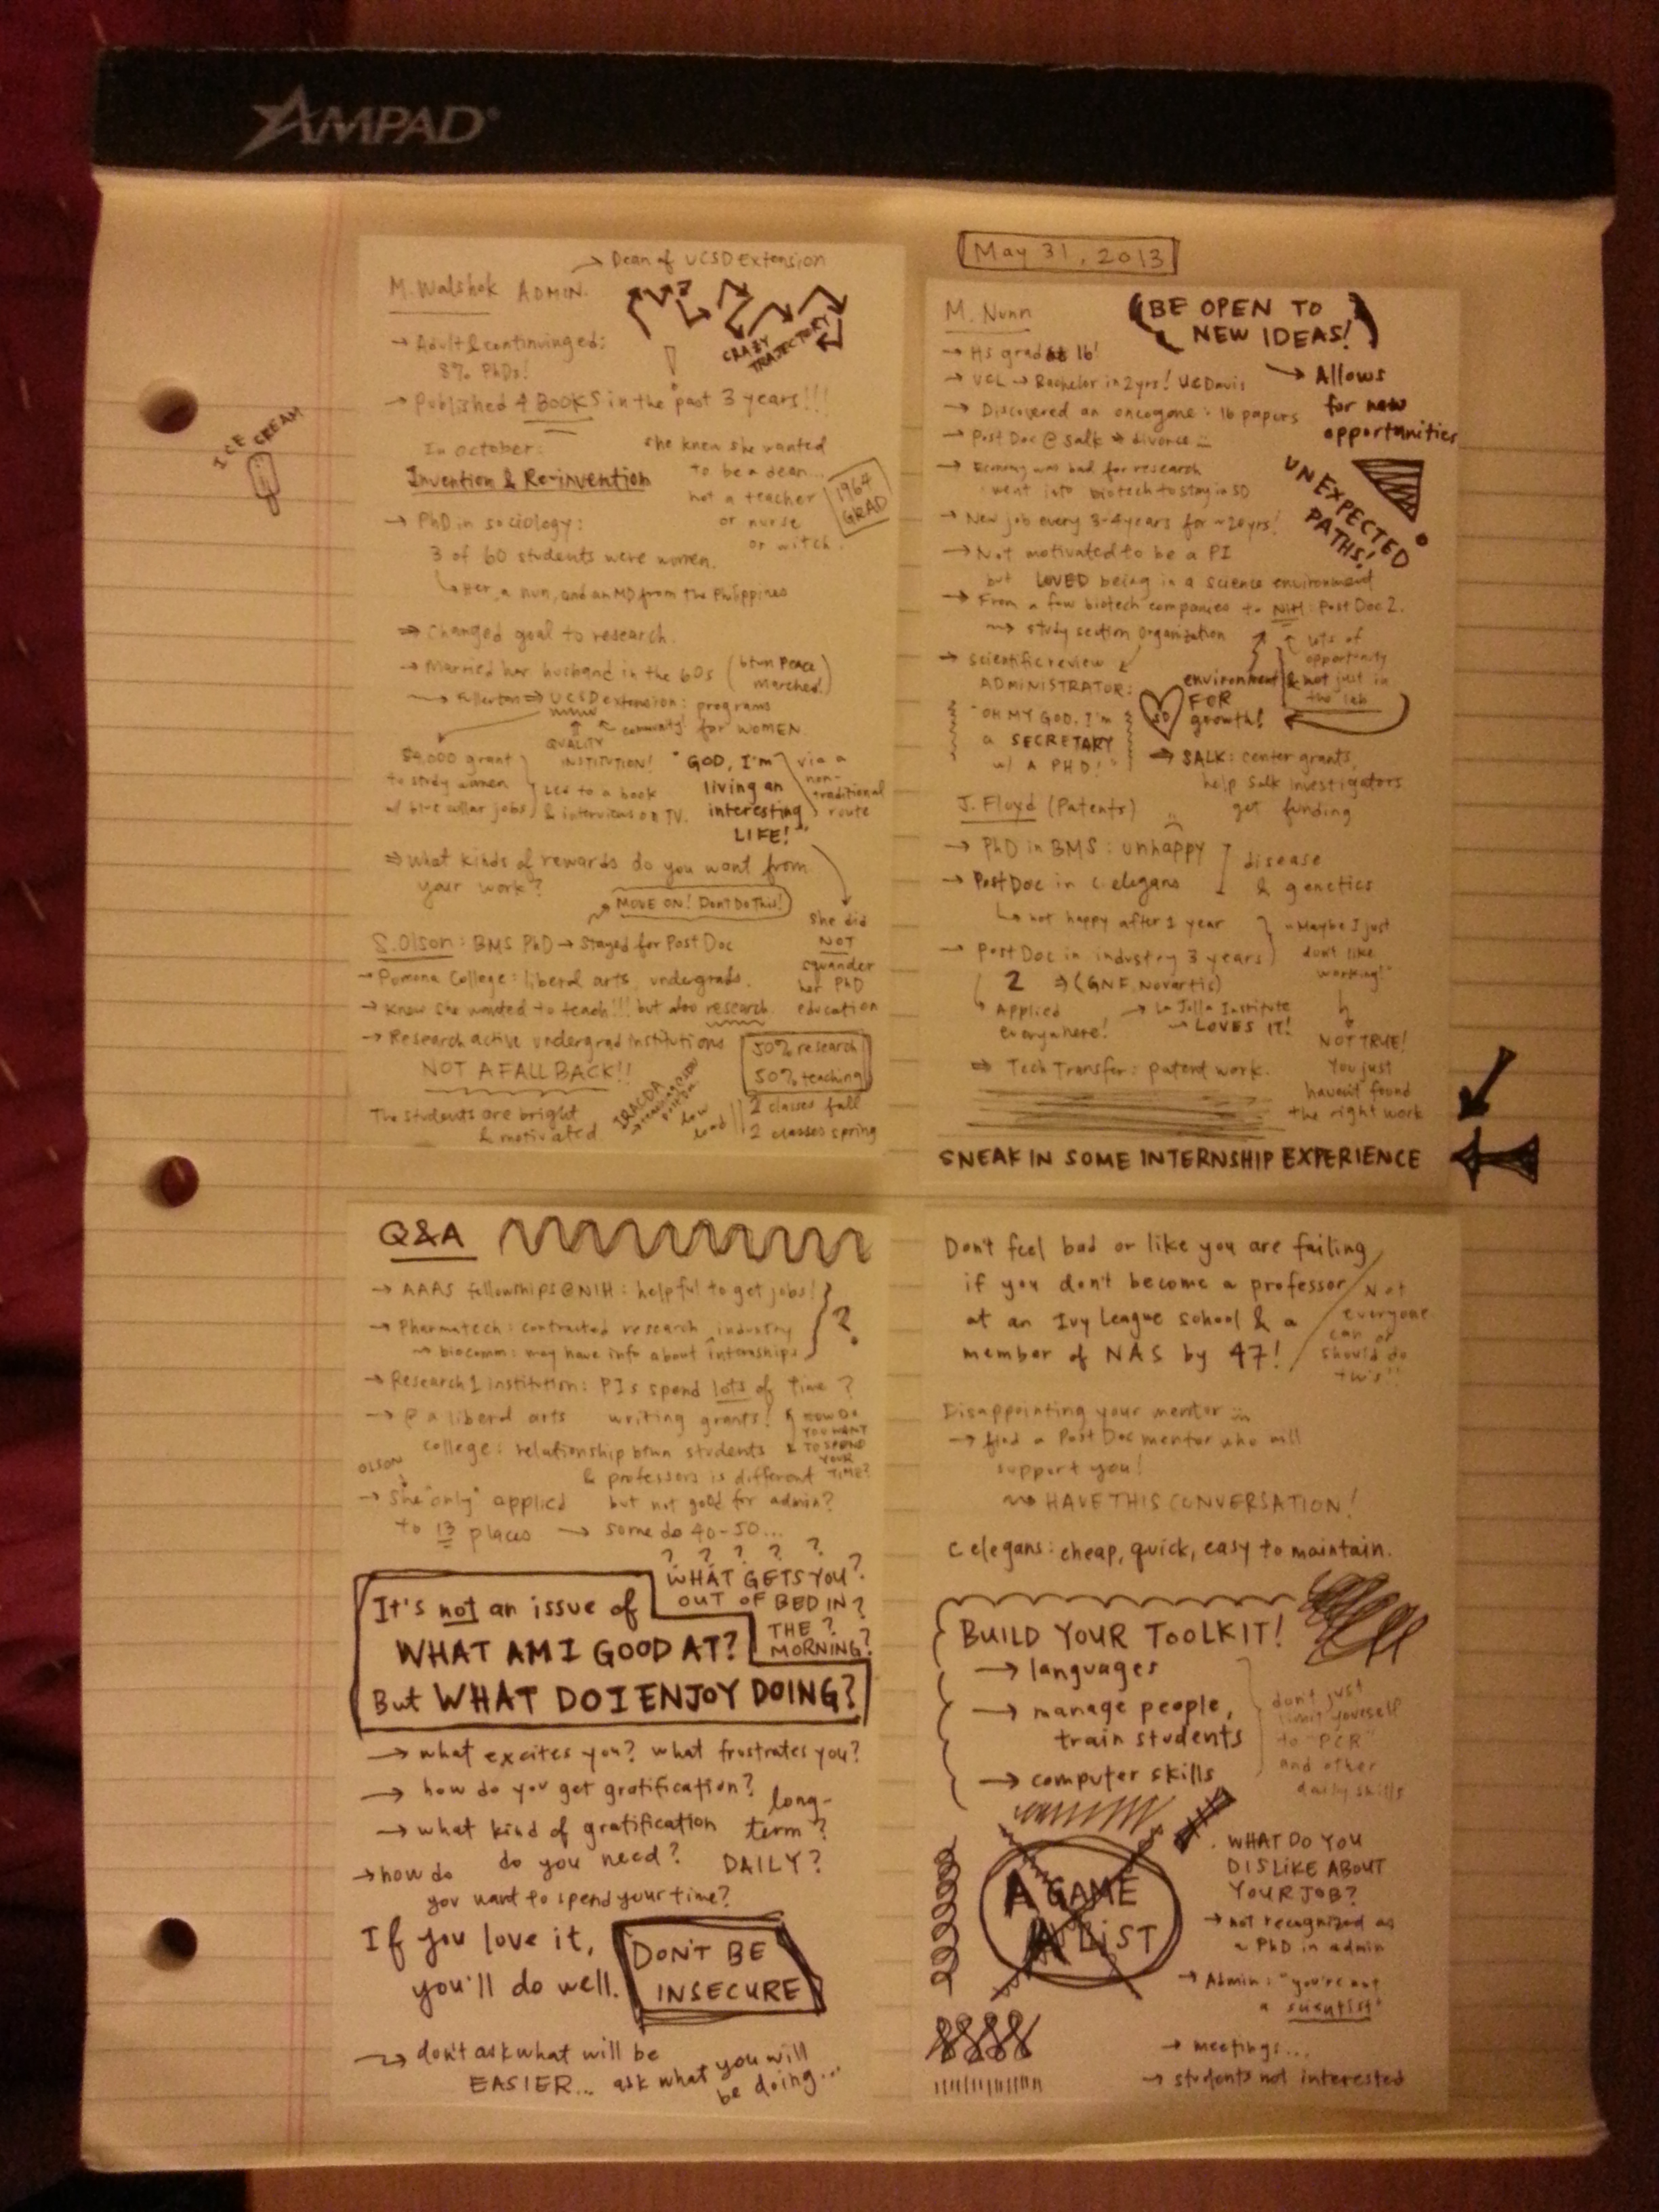 AMPAD
ICE CREAM
→ Dean of UCSD Extension
M. Walshok ADMIN.
CRAZY TRAJECTORY
→ Adult & continuing ed:
8% PhDs!
→ Published 4 BOOKS in the past 3 years!!!
In October:
Invention & Re-invention
she knew she wanted
to be a dean...
not a teacher
or nurse
or witch.
1964
GRAD
→ PhD in sociology:
3 of 60 students were women.
↳ Her, a nun, and an MD from the Philippines
⇒ Changed goal to research.
→ Married her husband in the 60s (btwn Peace
marches!)
Fullerton ⇒ UCSD extension: programs
community for WOMEN
QUALITY
INSTITUTION!
$9,000 grant
to study women
w/ blue collar jobs
Led to a book
& interviews on TV.
"GOD, I'm
living an
interesting
LIFE!"
via a
non-
traditional
route
⇒ What kinds of rewards do you want from
your work?
MOVE ON! Don't Do This!
She did
NOT
squander
her PhD
education
S. Olson: BMS PhD → Stayed for Post Doc
→ Pomona College: liberal arts, undergrads.
→ Knew she wanted to teach!!! but also research
→ Research active undergrad institutions
NOT A FALL BACK!!
50% research
50% teaching
The students are bright
& motivated
IRACDA
→ teaching
low
load
2 classes fall
2 classes spring
May 31, 2013
M. Nunn
(BE OPEN TO
NEW IDEAS!)
→ Allows
for new
opportunities
→ HS grad at 16!
→ Bachelor in 2 yrs! UC Davis
→ Discovered an oncogene: 16 papers
→ Post Doc @ Salk → divorce
→ Economy was bad for research
went into biotech to stay in SD
UNEXPECTED
PATHS!
→ New job every 3-4 years for ~20 yrs!
→ Not motivated to be a PI
but LOVED being in a science environment
→ From a few biotech companies to NIH: Post Doc 2.
study section organization
lots of
opportunity
& not just in
the lab
→ scientific review
ADMINISTRATOR:
environment
FOR
growth!
SD
"OH MY GOD, I'm
a SECRETARY
w/ A PHD!"
→ SALK: center grants,
help Salk Investigators
get funding
J. Floyd (Patents)
→ PhD in BMS: unhappy
→ Post Doc in C. elegans
disease
& genetics
↳ not happy after 1 year
→ Post Doc in industry 3 years
"Maybe I just
don't like
working!"
2 ⇒ (GNF, Novartis)
↳ Applied
everywhere!
→ La Jolla Institute
→ LOVES IT!
NOT TRUE!
You just
haven't found
the right work
⇒ Tech Transfer: patent work.
SNEAK IN SOME INTERNSHIP EXPERIENCE
Q&A
→ AAAS fellowships @ NIH: helpful to get jobs!
→ Pharmatech: contracted research, industry
biocomm: may have info about internships
?
→ Research 1 institution: PIs spend lots of time
writing grants!
→ @ a liberal arts
college: relationship btwn students
& professors is different
but not good for admin?
? HOW DO
YOU WANT
TO SPEND
YOUR
TIME?
OLSON
→ She "only" applied
to 13 places → some do 40-50...
? ? ? ? ?
WHAT GETS YOU?
OUT OF BED IN?
THE ?
MORNING?
It's not an issue of
WHAT AM I GOOD AT?
But WHAT DO I ENJOY DOING?
→ what excites you? what frustrates you?
→ how do you get gratification?
→ what kind of gratification
do you need?
long-
term?
DAILY?
→ how do
you want to spend your time?
If you love it,
you'll do well.
DON'T BE
INSECURE
don't ask what will be
EASIER... ask what you will
be doing...
Don't feel bad or like you are failing
if you don't become a professor
at an Ivy League school & a
member of NAS by 47!
Not
everyone
can or
should do
this"
Disappointing your mentor
→ find a Post Doc mentor who will
support you!
HAVE THIS CONVERSATION!
C elegans: cheap, quick, easy to maintain.
BUILD YOUR TOOLKIT!
→ languages
→ manage people,
train students
→ computer skills
don't just
limit yourself
to "PCR"
and other
daily skills
A GAME
A LIST
WHAT DO YOU
DISLIKE ABOUT
YOUR JOB?
→ not recognized as
a PhD in admin
→ Admin: "you're not
a scientist"
→ meetings...
→ students not interested